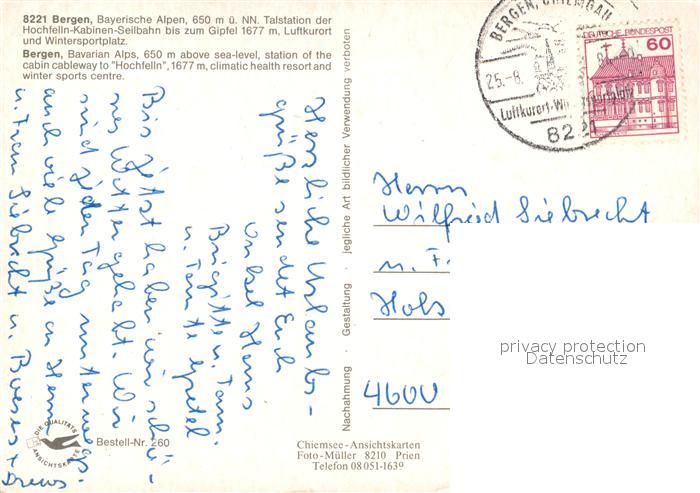 8221 Bergen, Bayerische Alpen, 650 m ü. NN. Talstation der
Hochfelln-Kabinen-Seilbahn bis zum Gipfel 1677 m, Luftkurort
und Wintersportplatz.
Bergen, Bavarian Alps, 650 m above sea-level, station of the
cabin cableway to "Hochfelln", 1677 m, climatic health resort and
winter sports centre.
BERGEN, CHIEMGAU
25.-8.
Luftkurort-
8221
DEUTSCHE BUNDESPOST
60
Herzliche Urlaubs-
grüße sendet Euch
Onkel Hans
Brigitte u. Tom.
u. Tante Gretel
Bis jetzt haben wir schö-
nes Wetter gehabt. Wir
sind jeden Tag unterwegs.
auch viele Grüße an Herrn
u. Frau Siebrecht u.
Herrn
Wilfried Siebrecht
u. F.
Hols
4600
privacy protection
Datenschutz
Nachahmung · Gestaltung · jegliche Art bildlicher Verwendung verboten
DIE QUALITÄTS
ANSICHTSKARTE
Bestell-Nr. 260
Chiemsee-Ansichtskarten
Foto-Müller 8210 Prien
Telefon 08051-1639